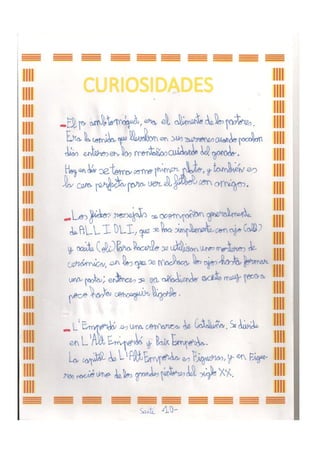 CURIOSIDADES
-El pa amb tomàquet, era el alimento de los pastores.
Era la comida que llevaban en sus zurrones cuando pasaban
días enteros en las montañas cuidando del ganado.
Hoy en día se toma como primer plato, y también es
la cena perfecta para ver el fútbol con amigos.
-Los fideos rossejats se acompañan generalmente
de A L L I O L I, que se hace simplemente con ajo (all)
y aceite (oli). Para hacerlo se utilizan unos morteros de
cerámica, en los que se machaca los ajos hasta formar
una pasta; entonces se va añadiendo aceite muy poco a
poco hasta conseguir ligarlo.
-L'Empordà es una comarca de Cataluña. Se divide
en L'Alt Empordà y Baix Empordà.
La capital de L'Alt Empordà es Figueras, y en Figue-
ras nació uno de los grandes pintores del siglo XX.
-10-